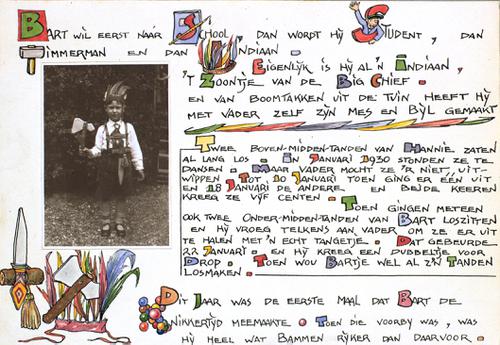 BART WIL EERST NAAR SCHOOL DAN WORDT HY STUDENT, DAN
TIMMERMAN EN DAN INDIAAN.
EIGENLYK IS HY AL 'N INDIAAN,
'T ZOONTJE VAN DE BIG CHIEF.
EN VAN BOOMTAKKEN UIT DE TUIN HEEFT HY
MET VADER ZELF ZYN MES EN BYL GEMAAKT
TWEE BOVEN-MIDDEN-TANDEN VAN HANNIE ZATEN
AL LANG LOS. IN JANUARI 1930 STONDEN ZE TE
DANSEN. MAAR VADER MOCHT ZE 'R NIET UIT-
WIPPEN TOT 10 JANUARI TOEN GING ER EEN UIT
EN 18 JANUARI DE ANDERE EN BEIDE KEEREN
KREEG ZE VYF CENTEN.
TOEN GINGEN METEEN
OOK TWEE ONDER-MIDDEN-TANDEN VAN BART LOSZITTEN
EN HY VROEG TELKENS AAN VADER OM ZE ER UIT
TE HALEN MET 'N ECHT TANGETJE. DAT GEBEURDE
22 JANUARI. EN HY KREEG EEN DUBBELTJE VOOR
DROP. TOEN WOU BARTJE WEL AL Z'N TANDEN
LOSMAKEN.
DIT JAAR WAS DE EERSTE MAAL DAT BART DE
KNIKKERTYD MEEMAAKTE. TOEN DIE VOORBY WAS, WAS
HY HEEL WAT BAMMEN RYKER DAN DAARVOOR.